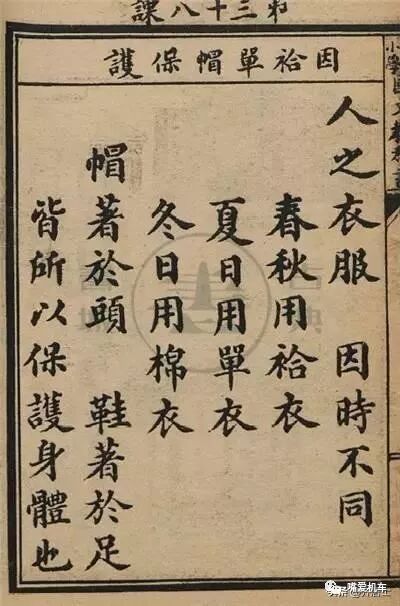 第三十八課
因袷單帽保護
人之衣服　因時不同
春秋用袷衣
夏日用單衣
冬日用棉衣
帽著於頭　鞋著於足
皆所以保護身體也
嘴爱机车